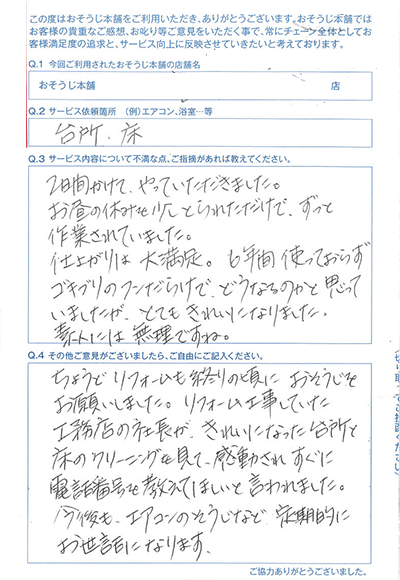 この度はおそうじ本舗をご利用いただき、ありがとうございます。おそうじ本舗では
お客様の貴重なご感想、お叱り等ご意見をいただく事で、常にチェーン全体としてお
客様満足度の追求と、サービス向上に反映させていきたいと考えております。
Q.1 今回ご利用されたおそうじ本舗の店舗名
おそうじ本舗 店
Q.2 サービス依頼箇所 (例)エアコン、浴室…等
台所、床
Q.3 サービス内容について不満な点、ご指摘があれば教えてください。
2日間かけて、やっていただきました。
お昼の休みも少しとられただけで、ずっと
作業されていました。
仕上がりは 大満足。6年間 使っておらず
ゴキブリのフンだらけで、どうなるのかと思って
いましたが、とてもきれいになりました。
素人には無理ですね。
Q.4 その他ご意見がございましたら、ご自由にご記入ください。
ちょうど リフォームも終りの頃に おそうじを
お願いしました。リフォーム工事していた
工務店の社長が、きれいになった台所と
床のクリーニングを見て、感動され すぐに
電話番号を教えてほしいと言われました。
今後も、エアコンのそうじなど 定期的に
お世話になります。
ご協力ありがとうございました。